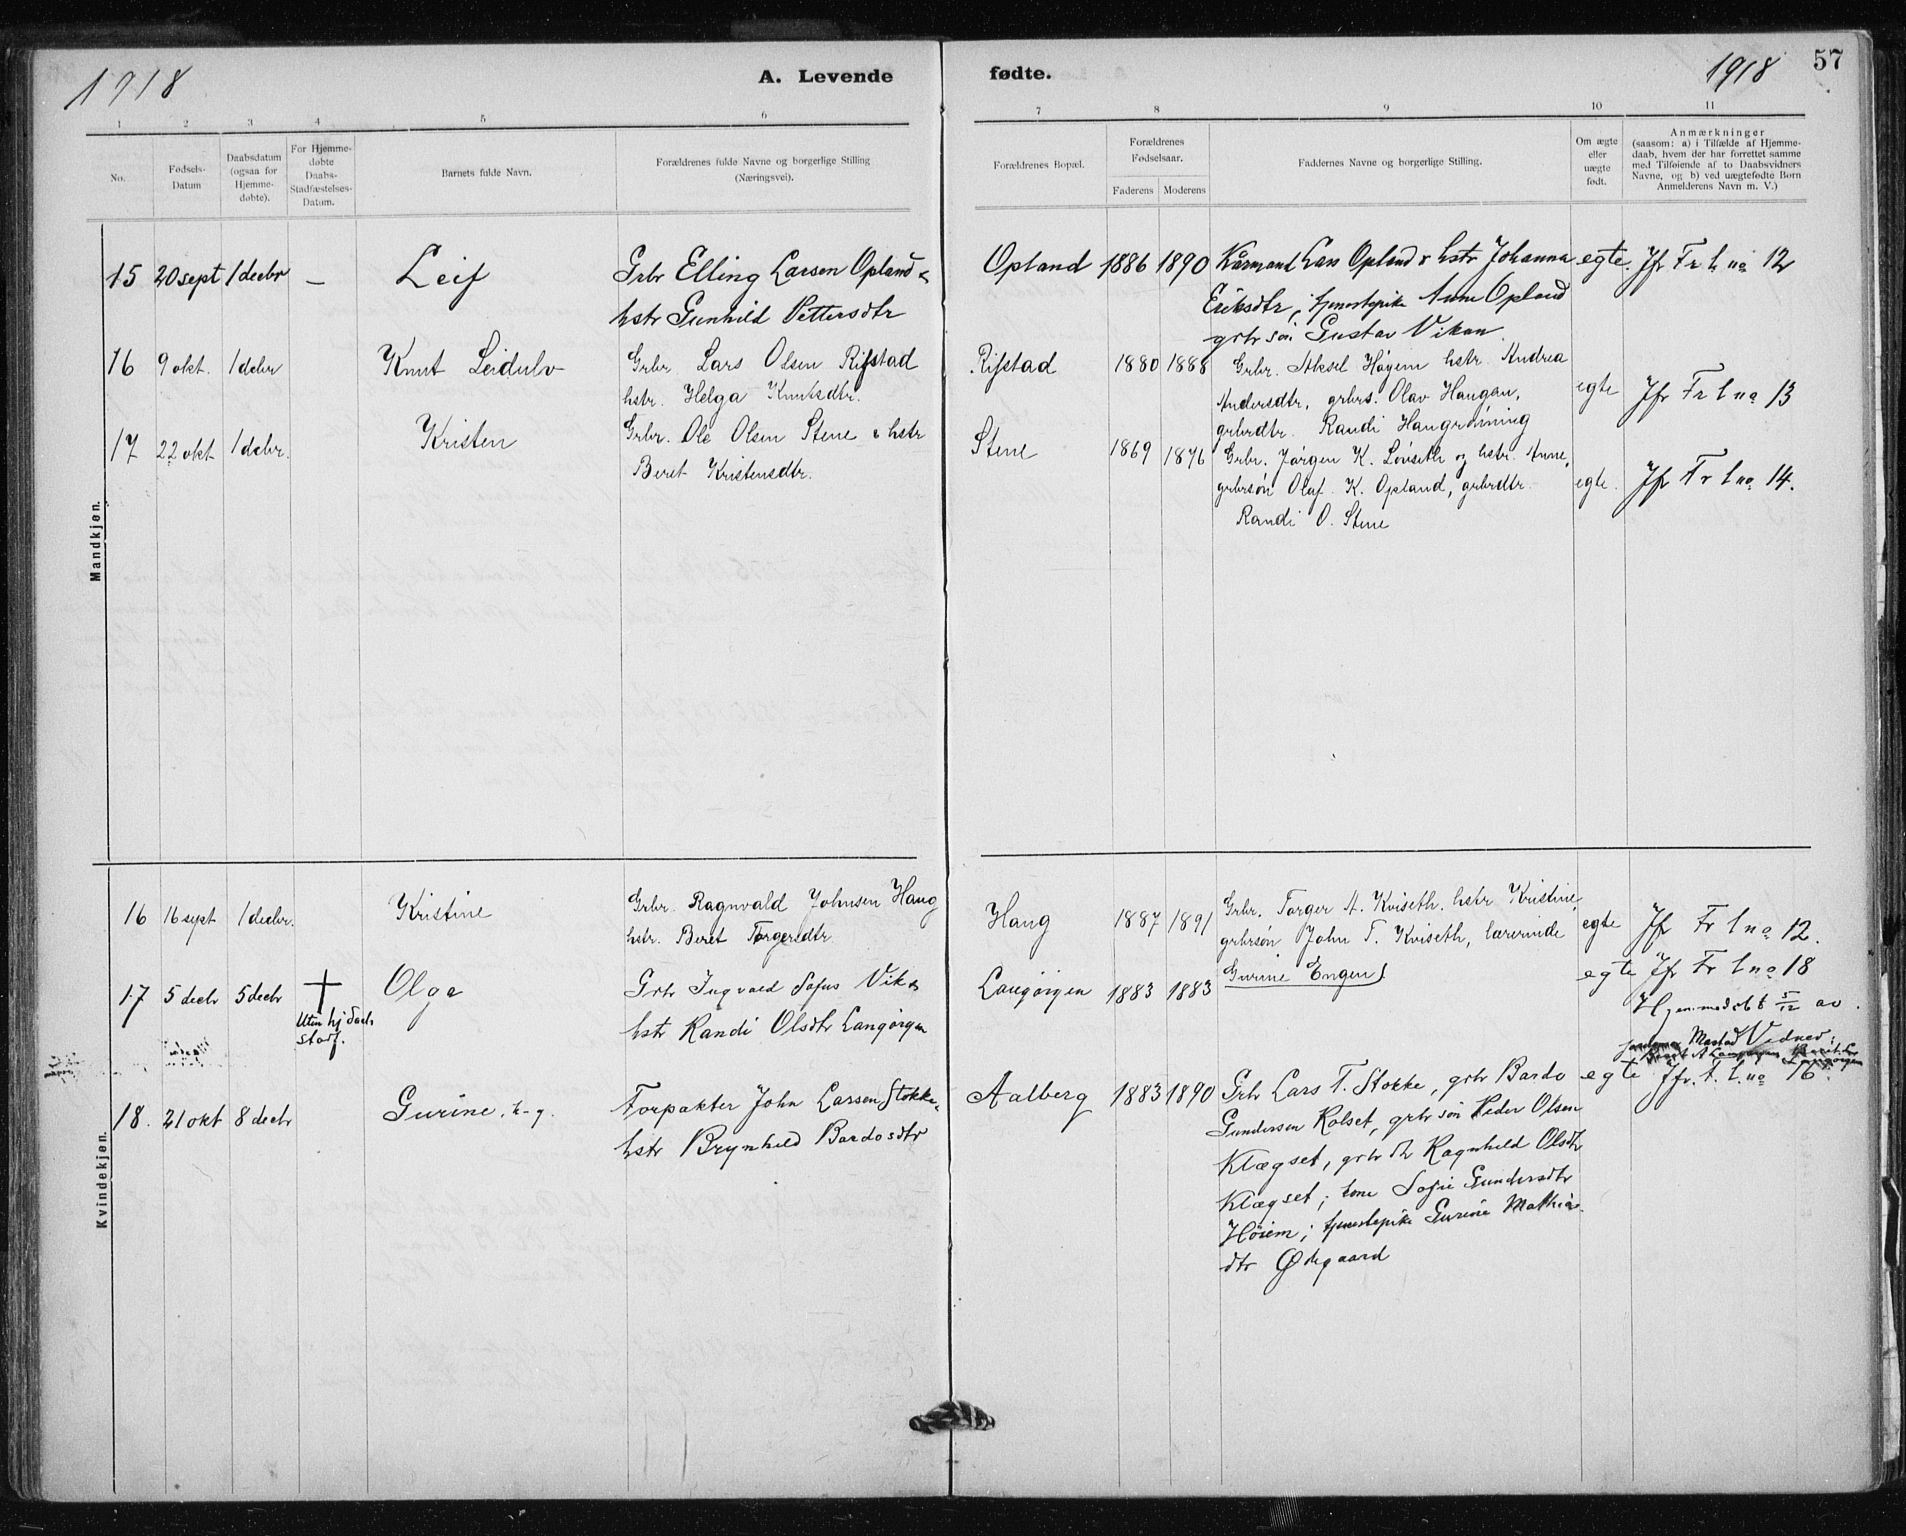 1918
A. Levende fødte.
1918
57
1 2 3 4 5 6 7 8 9 10 11
No.
Fødsels-
Datum
Daabsdatum
(ogsaa for
Hjemme-
døbte).
For Hjemme-
døbte
Daabs-
Stadfæstelses-
Datum.
Barnets fulde Navn.
Forældrenes fulde Navne og borgerlige Stilling
(Næringsvei).
Forældrenes Bopæl.
Forældrenes
Fødselsaar.
Faderens Moderens
Faddernes Navne og borgerlige Stilling.
Om ægte
eller
uægte
født.
Anmærkninger
(saasom: a) i Tilfælde af Hjemme-
daab, hvem der har forrettet samme
med Tilføiende af to Daabsvidners
Navne, og b) ved uægtefødte Børn
Anmelderens Navn m. V.)
Mandkjøn.
15 20 sept 1 decbr – Leif
Grbr Elling Larsen Opland &
hstr Gunhild Pettersdtr
Opland 1886 1890
Kårmand Lars Opland & hstr Johanna
Eriksdtr, tjenestepike Anne Opland
grbr søn Gustav Vikan.
egte. Jfr Fr l no 12
16 9 okt. 1 decbr Knut Leidulv
Grbr. Lars Olsen Rifstad
hstr. Helga Knutsdtr.
Rifstad 1880 1888
Grbr. Aksel Høyem hstr. Andrea
Andersdtr, grbrs. Olav Haugan,
grbrdtr. Randi Haugrønning
egte Jfr Fr l no 13
17 22 okt 1 decbr. Kristen
Grbr. Ole Olsen Stene & hstr
Beret Kristensdtr.
Stene 1869 1876
Grbr. Jørgen K. Løvseth og hstr. Anne,
grbrsøn Olaf K. Opland, grbrdtr.
Randi O. Stene
egte. Jfr Fr l no 14.
Kvindekjøn.
16 16 sept 1 decbr. Kristine
Grbr. Ragnvald Johnsen Haug
hstr. Beret Torgersdtr
Haug 1887 1891
Grbr. Torger A. Kviseth. hstr Kristine,
grbrsøn John T. Kviseth, lærerinde
Gurine Engen
egte Jfr Fr l no 12.
17 5 decbr 5 decbr
Uten hj daabs
stadf.
Olga
Grbr Ingvald Sofus Vik &
hstr Randi Olsdtr Langørgen
Langørgen 1883 1883
egte Jfr Fr l no 18
Hjemmedøbt 5/12 av
Mastad Vidner:
18. 21 okt 8 decbr Gurine, t-g.
Forpakter John Larsen Stokke &
hstr Brynhild Bardosdtr
Aalberg 1883 1890
Grbr Lars T. Stokke, grbr Bardo
Gundersen Rolset, grbr søn Peder Olsen
Klægset, grbr dtr Ragnhild Olsdtr
Klægset; kone Sofie Gundersdtr
Høiem; tjenestepike Gurine Mathias-
dtr Ødegaard
egte Jfr. F. l. no 16.